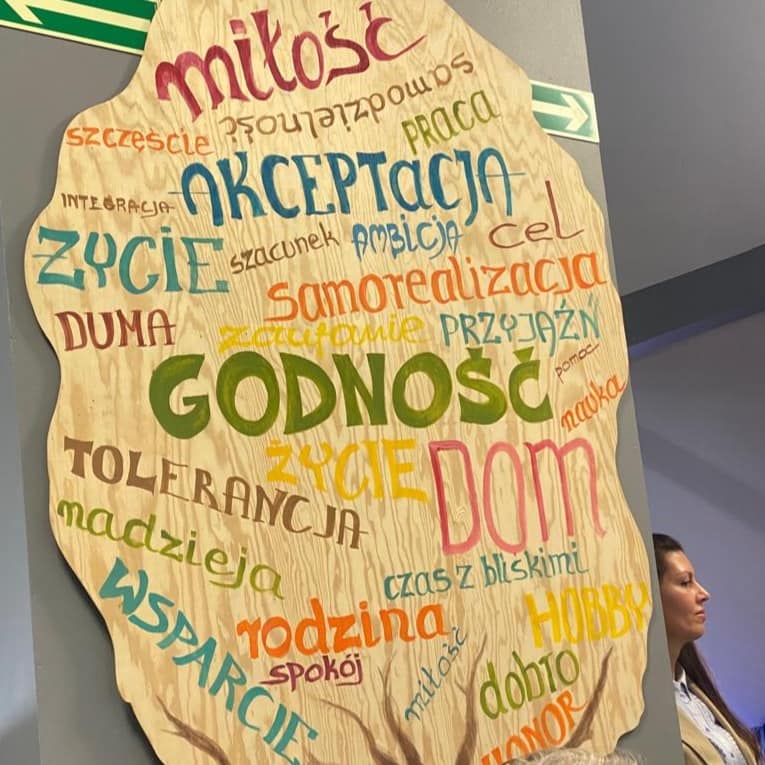 miłość
samodzielność
szczęście
PRACA
AKCEPTACJA
INTEGRACJA
ŻYCIE
szacunek
AMBICJA
CEL
samorealizacja
DUMA
zaufanie
PRZYJAŹŃ
GODNOŚĆ
pomoc
nauka
ŻYCIE
TOLERANCJA
DOM
nadzieja
czas z bliskimi
WSPARCIE
rodzina
HOBBY
spokój
miłość
dobro
HONOR